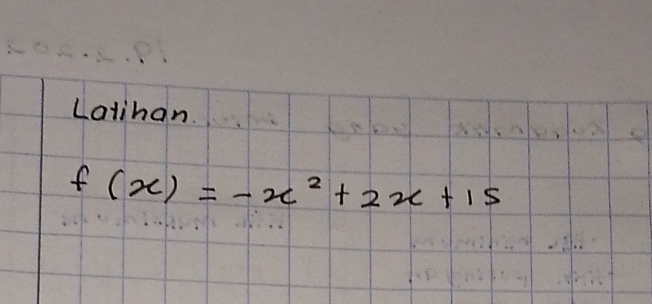 Latihan
f(x) = -x² + 2x + 15